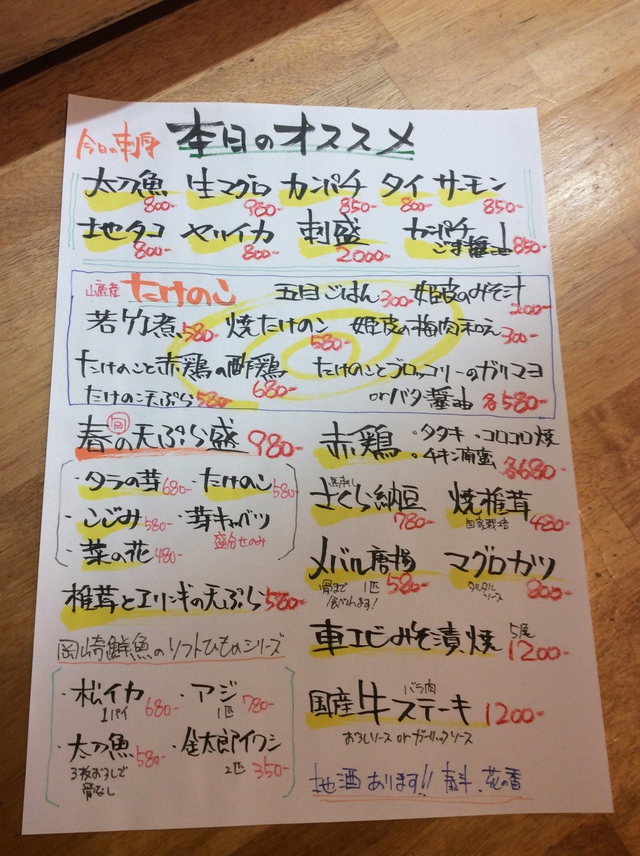 今日の刺身 本日のオススメ
太刀魚 800- 生マグロ 980- カンパチ 850- タイ 800- サーモン 850-
地タコ 800- ヤリイカ 800- 刺盛 2000- カンパチごま醤油 850-
たけのこ 五目ごはん 300- 姫皮のみそ汁 200-
若竹煮 580- 焼たけのこ 580- 姫皮の梅肉和え 300-
たけのこと赤鶏の酢鶏 680- たけのことブロッコリーのガリマヨ
たけのこ天ぷら 580- orバタ醤油 各580-
春の天ぷら盛 980-
・タラの芽 680- ・たけのこ 580-
・こごみ 580- ・芽キャベツ 盛合せのみ
・菜の花 480-
椎茸とエリンギの天ぷら 580-
岡崎鮮魚のソフトひものシリーズ
・松イカ 1パイ 680- ・アジ 1匹 780-
・太刀魚 580- ・金太郎イワシ
3枚おろしで 2匹 350-
骨なし
赤鶏 ・タタキ ・コロコロ焼
・チキン南蛮 各680-
馬刺し
さくら納豆 780- 焼椎茸 自家栽培 480-
メバル唐揚 580- マグロカツ 800-
骨まで 1匹 タルタル
食べれます! ソース
車エビみそ漬焼 5尾 1200-
国産牛ステーキ バラ肉 1200-
おろしソース orガーリックソース
地酒あります!! 花の香